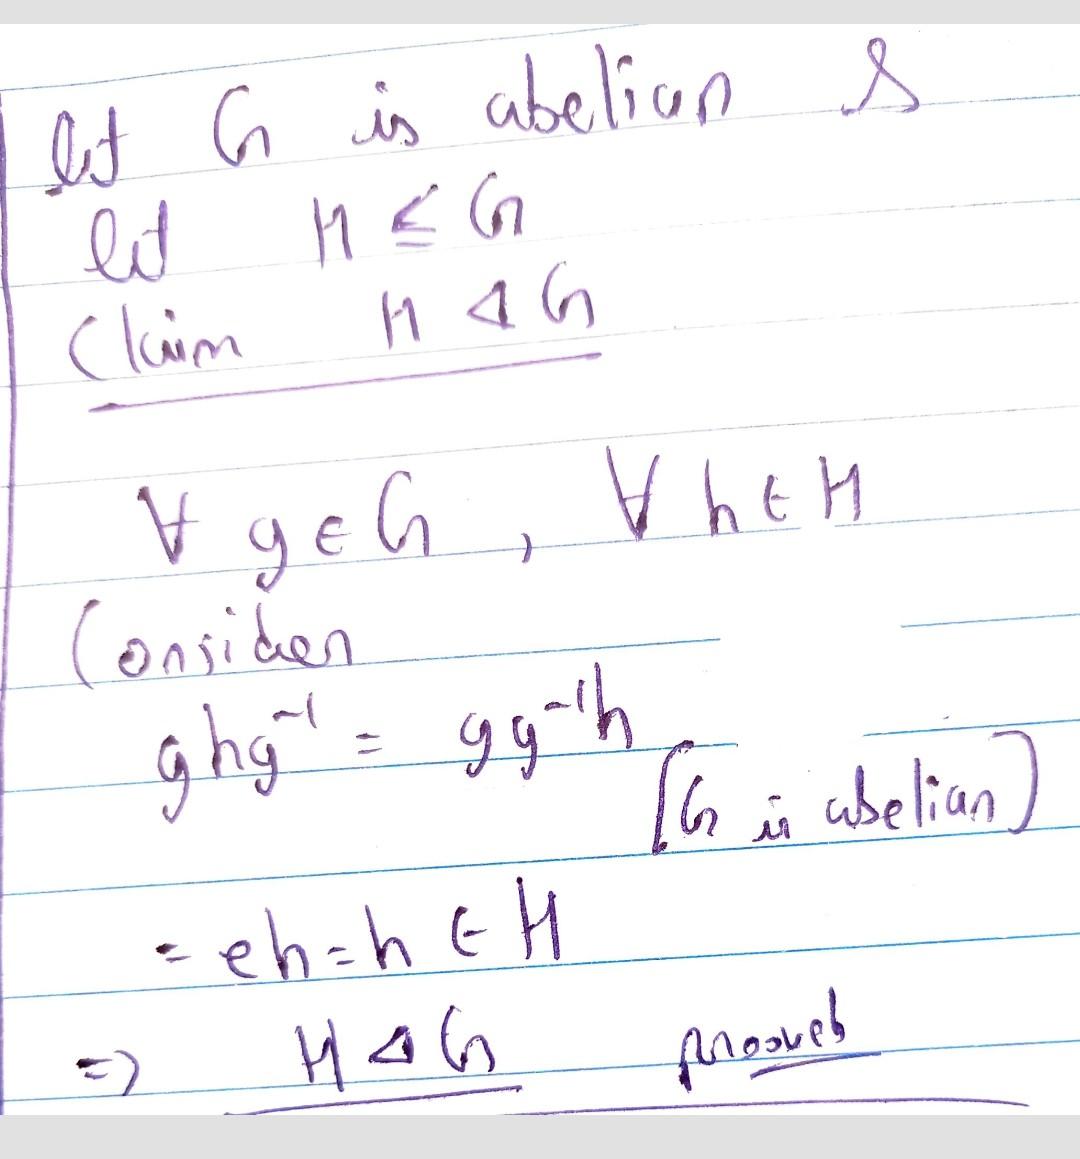 let G is abelian &
let H ≤ G
Claim H ⊲ G
∀ g ∈ G , ∀ h ∈ H
Consider
ghg⁻¹ = gg⁻¹h
[G is abelian]
= eh = h ∈ H
⇒ H ⊲ G prooved